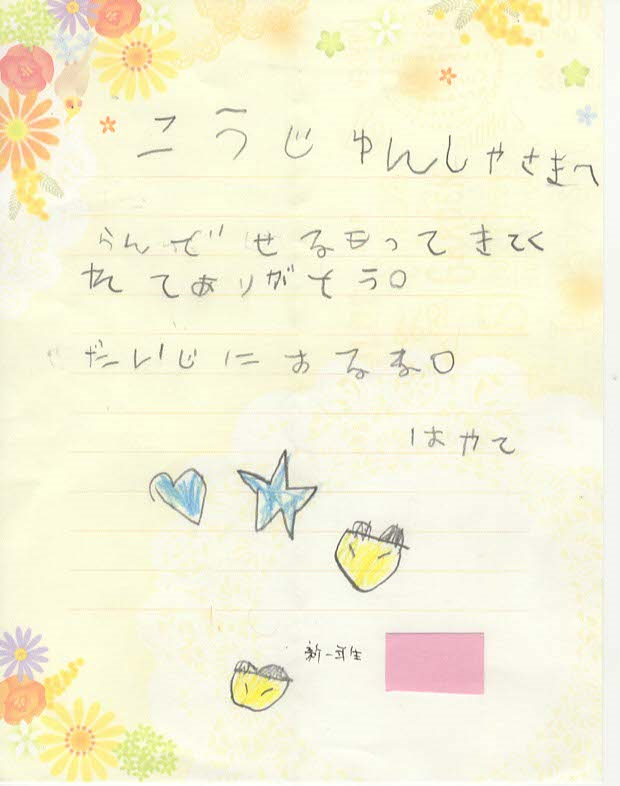 こうじゅんしゃさまへ
らんどせるもってきてく
れてありがとう。
だいじにするね。
はやて
新一年生